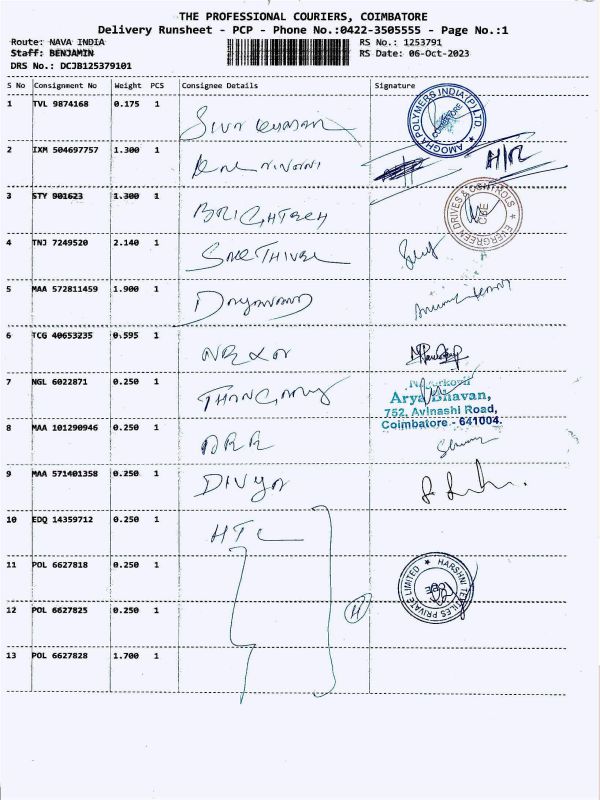 THE PROFESSIONAL COURIERS, COIMBATORE
Delivery Runsheet - PCP - Phone No.:0422-3505555 - Page No.:1
Route: NAVA INDIA RS No.: 1253791
Staff: BENJAMIN RS Date: 06-Oct-2023
DRS No.: DCJB125379101
S No Consignment No Weight PCS Consignee Details Signature
1 TVL 9874168 0.175 1 Siva Kumar AMOGHA POLYMERS INDIA (P) LTD COIMBATORE
2 IXM 504697757 1.300 1
3 STY 901623 1.300 1 BRIGHTECH EVERGREEN DRIVES & CONTROLS CBE
4 TNJ 7249520 2.140 1 SAKTHIVEL
5 MAA 572811459 1.900 1 Dayanand
6 TCG 40653235 0.595 1
7 NGL 6022871 0.250 1 Nagerkovil
Arya Bhavan,
752, Avinashi Road,
Coimbatore - 641004.
8 MAA 101290946 0.250 1
9 MAA 571401358 0.250 1 DIVYA
10 EDQ 14359712 0.250 1 HTL
11 POL 6627818 0.250 1 HARSHNI TEXTILES PRIVATE LIMITED CBE
12 POL 6627825 0.250 1 H
13 POL 6627828 1.700 1